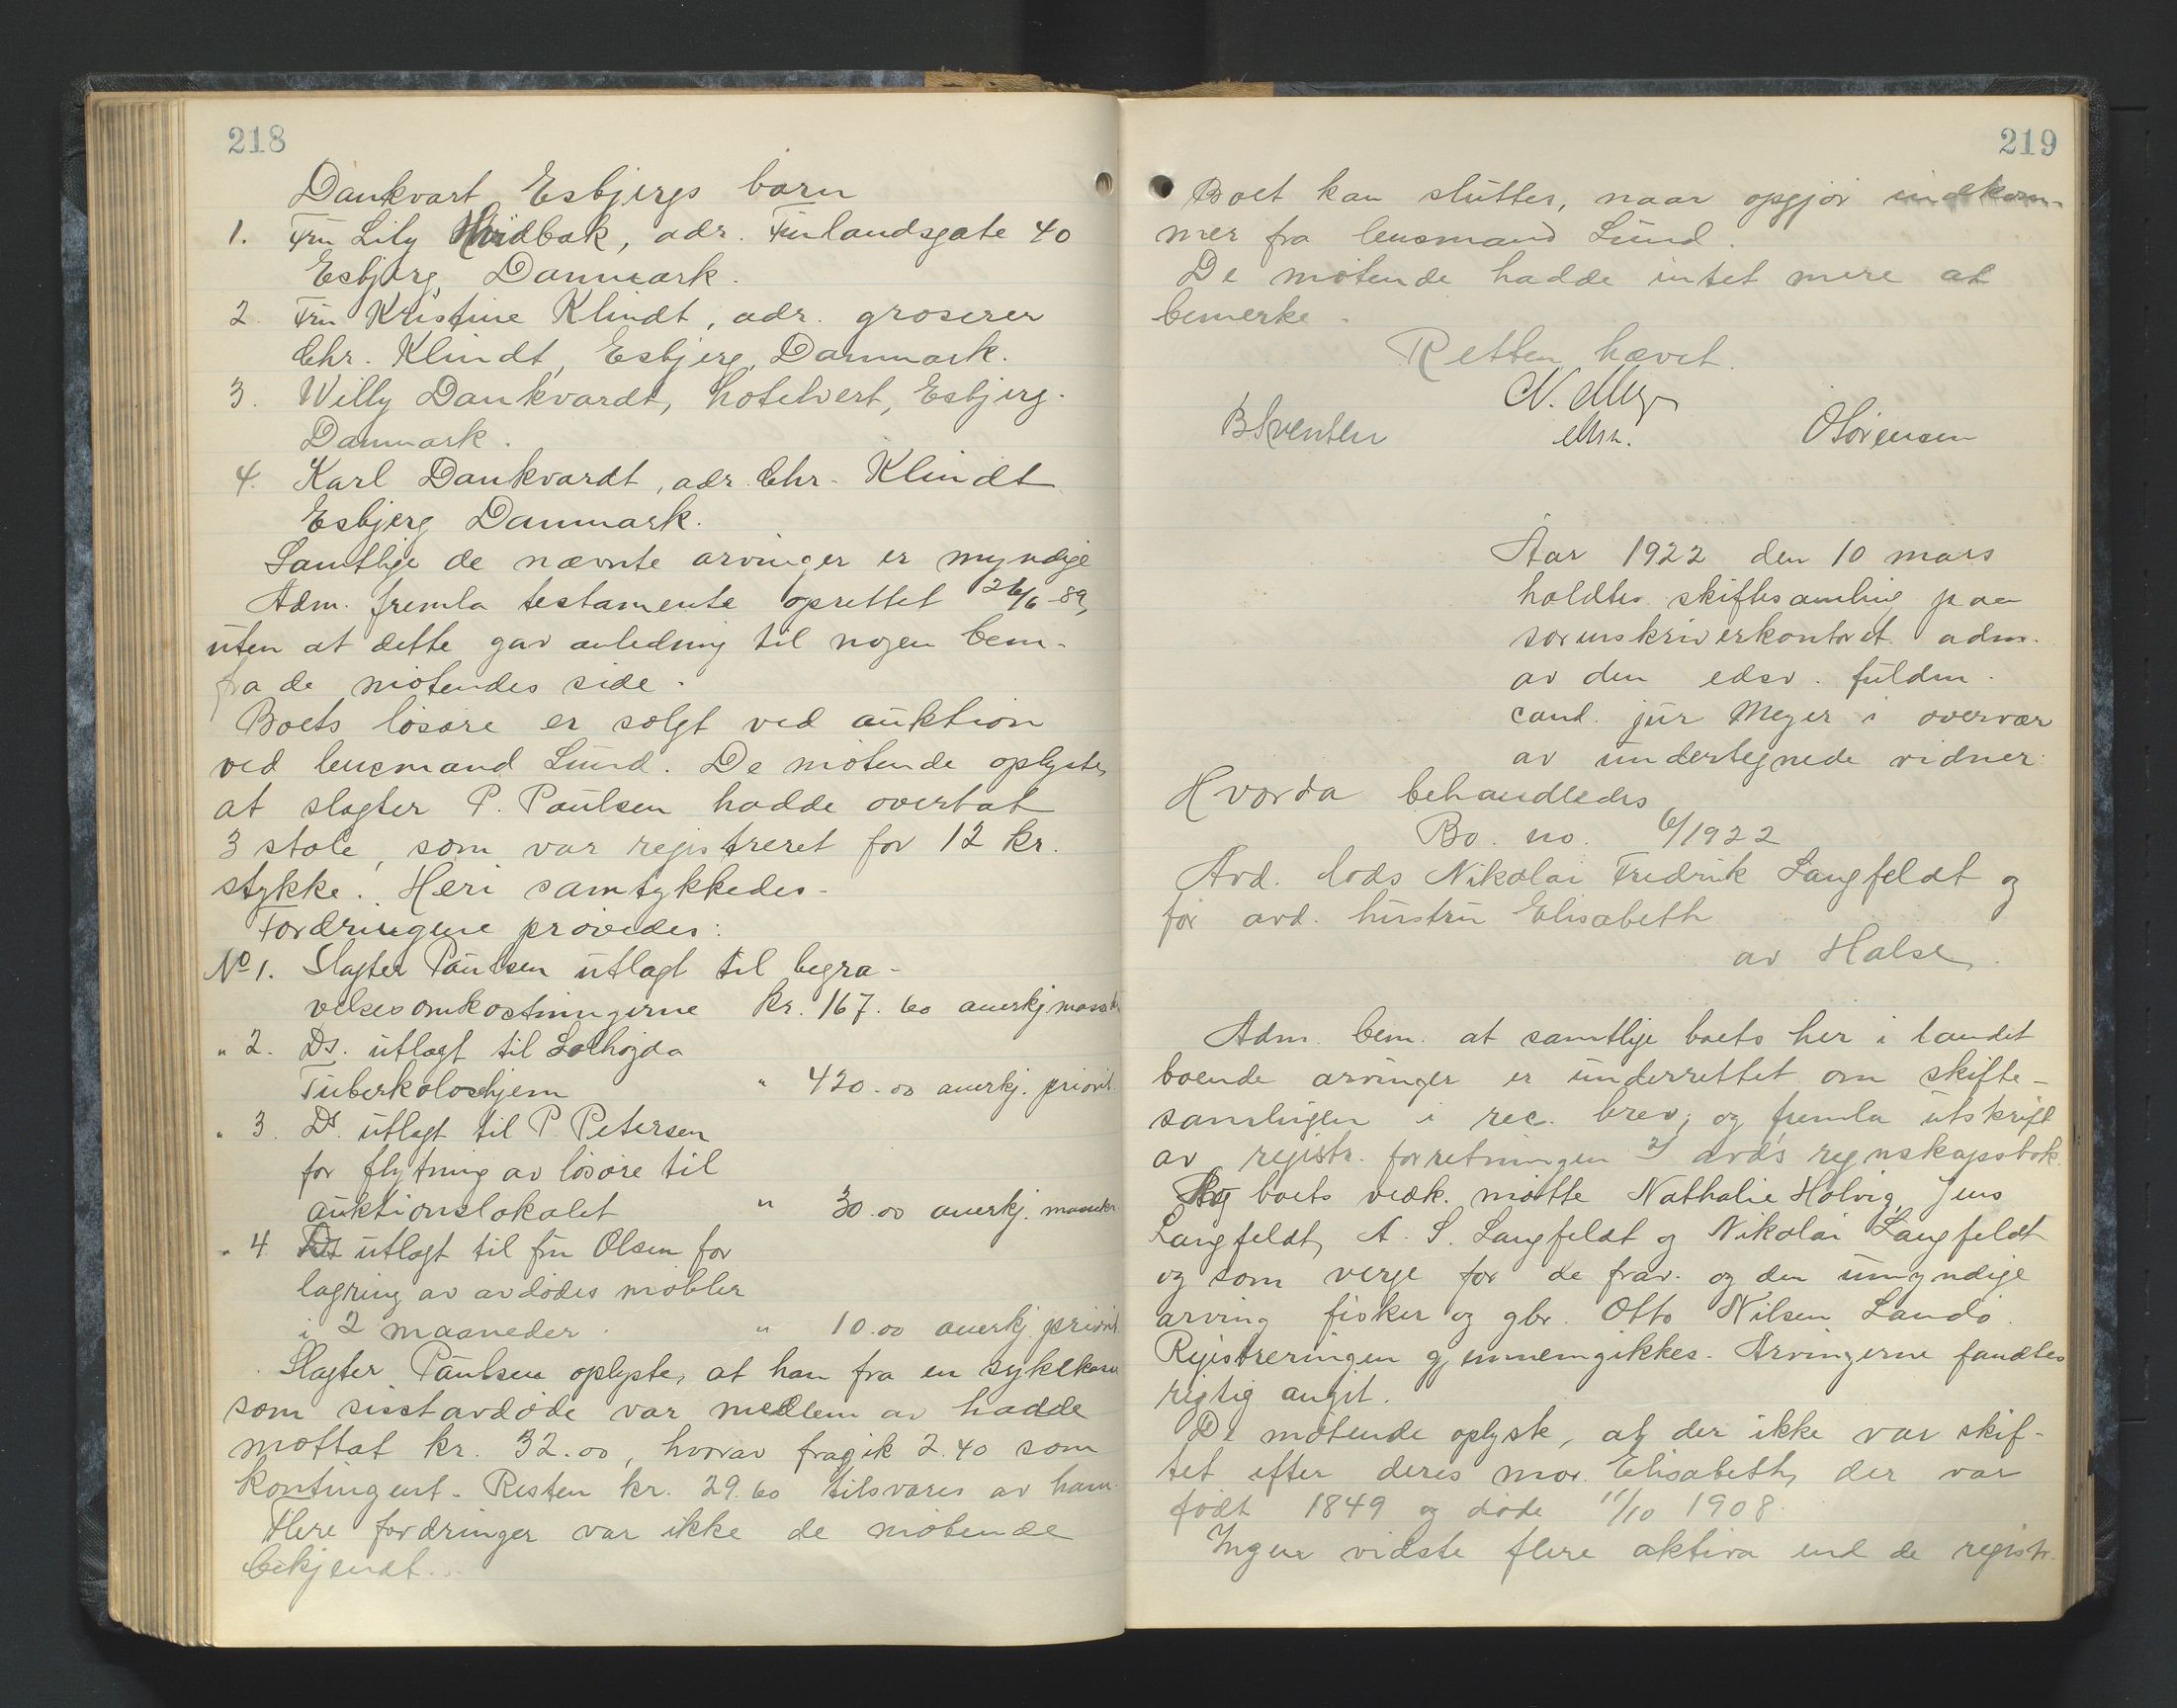 218
Dankvart Esbjergs barn
1. Fru Lily Hvidbak, adr. Finlandsgate 40
Esbjerg, Danmark.
2. Fru Kristine Klindt, adr. groserer
Chr. Klindt, Esbjerg, Danmark.
3. Willy Dankvardt, hotelvert, Esbjerg.
Danmark.
4. Karl Dankvardt, adr. Chr. Klindt
Esbjerg Danmark.
Samtlige de nævnte arvinger er myndige
Adm. fremla testamente oprettet 26/6-89,
uten at dette gav anledning til nogen bem.
fra de møtendes side.
Boets løsøre er solgt ved auktion
ved lensmand Lund. De møtende oplyste,
at slagter P. Paulsen hadde overtat
3 stole, som var registreret for 12 kr.
stykke. Heri samtykkedes.
Fordringene prøvedes:
No 1. Slagter Paulsen utlagt til begra-
velsesomkostningerne kr. 167.60 anerkj. massekr
" 2. Ds. utlagt til Solhøgda
Tuberkoloshjem " 420.00 anerkj. priorit.
" 3. Ds. utlagt til P. Petersen
for flytning av løsøre til
auktionslokalet " 30.00 anerkj. massekr.
" 4. Ds utlagt til fru Olsen for
lagring av avdødes møbler
i 2 maaneder. " 10.00 anerkj. priorit.
Slagter Paulsen oplyste, at han fra en sykekasse
som sisstavdøde var medlem av hadde
mottat kr. 32.00, hvorav fragik 2.40 som
kontingent. Resten kr. 29.60 tilsvares av ham.
Flere fordringer var ikke de møtende
bekjendt.
219
Boet kan sluttes, naar opgjør indkom-
mer fra lensmand Lund.
De møtende hadde intet mere at
bemerke.
Retten hævet.
N. Meyer
BSventsen OSørensen
Aar 1922 den 10 mars
holdtes skiftesamling paa
sorenskriverkontoret adm.
av den edsv. fuldm.
cand. jur Meyer i overvær
av undertegnede vidner:
Hvorda behandledes
Bo. no. 6/1922
Avd. lods Nikolai Fredrik Langfeldt og
før avd. hustru Elisabeth
av Halse.
Adm. bem. at samtlige boets her i landet
boende arvinger er underrettet om skifte-
samlingen i rec. brev, og fremla utskrift
av registr. forretningen 2) avd's regnskapsbok.
boets vedk. møtte Nathalie Holvig, Jens
Langfeldt, A. S. Langfeldt og Nikolai Langfeldt
og som verge for de frav. og den umyndige
arving fisker og gbr. Otto Nilsen Landø.
Registreringen gjennemgikkes. Arvingerne fandtes
rigtig angit.
De møtende oplyste, at der ikke var skif-
tet efter deres mor Elisabeth, der var
født 1849 og døde 11/10 1908.
Ingen vidste flere aktiva end de registr.